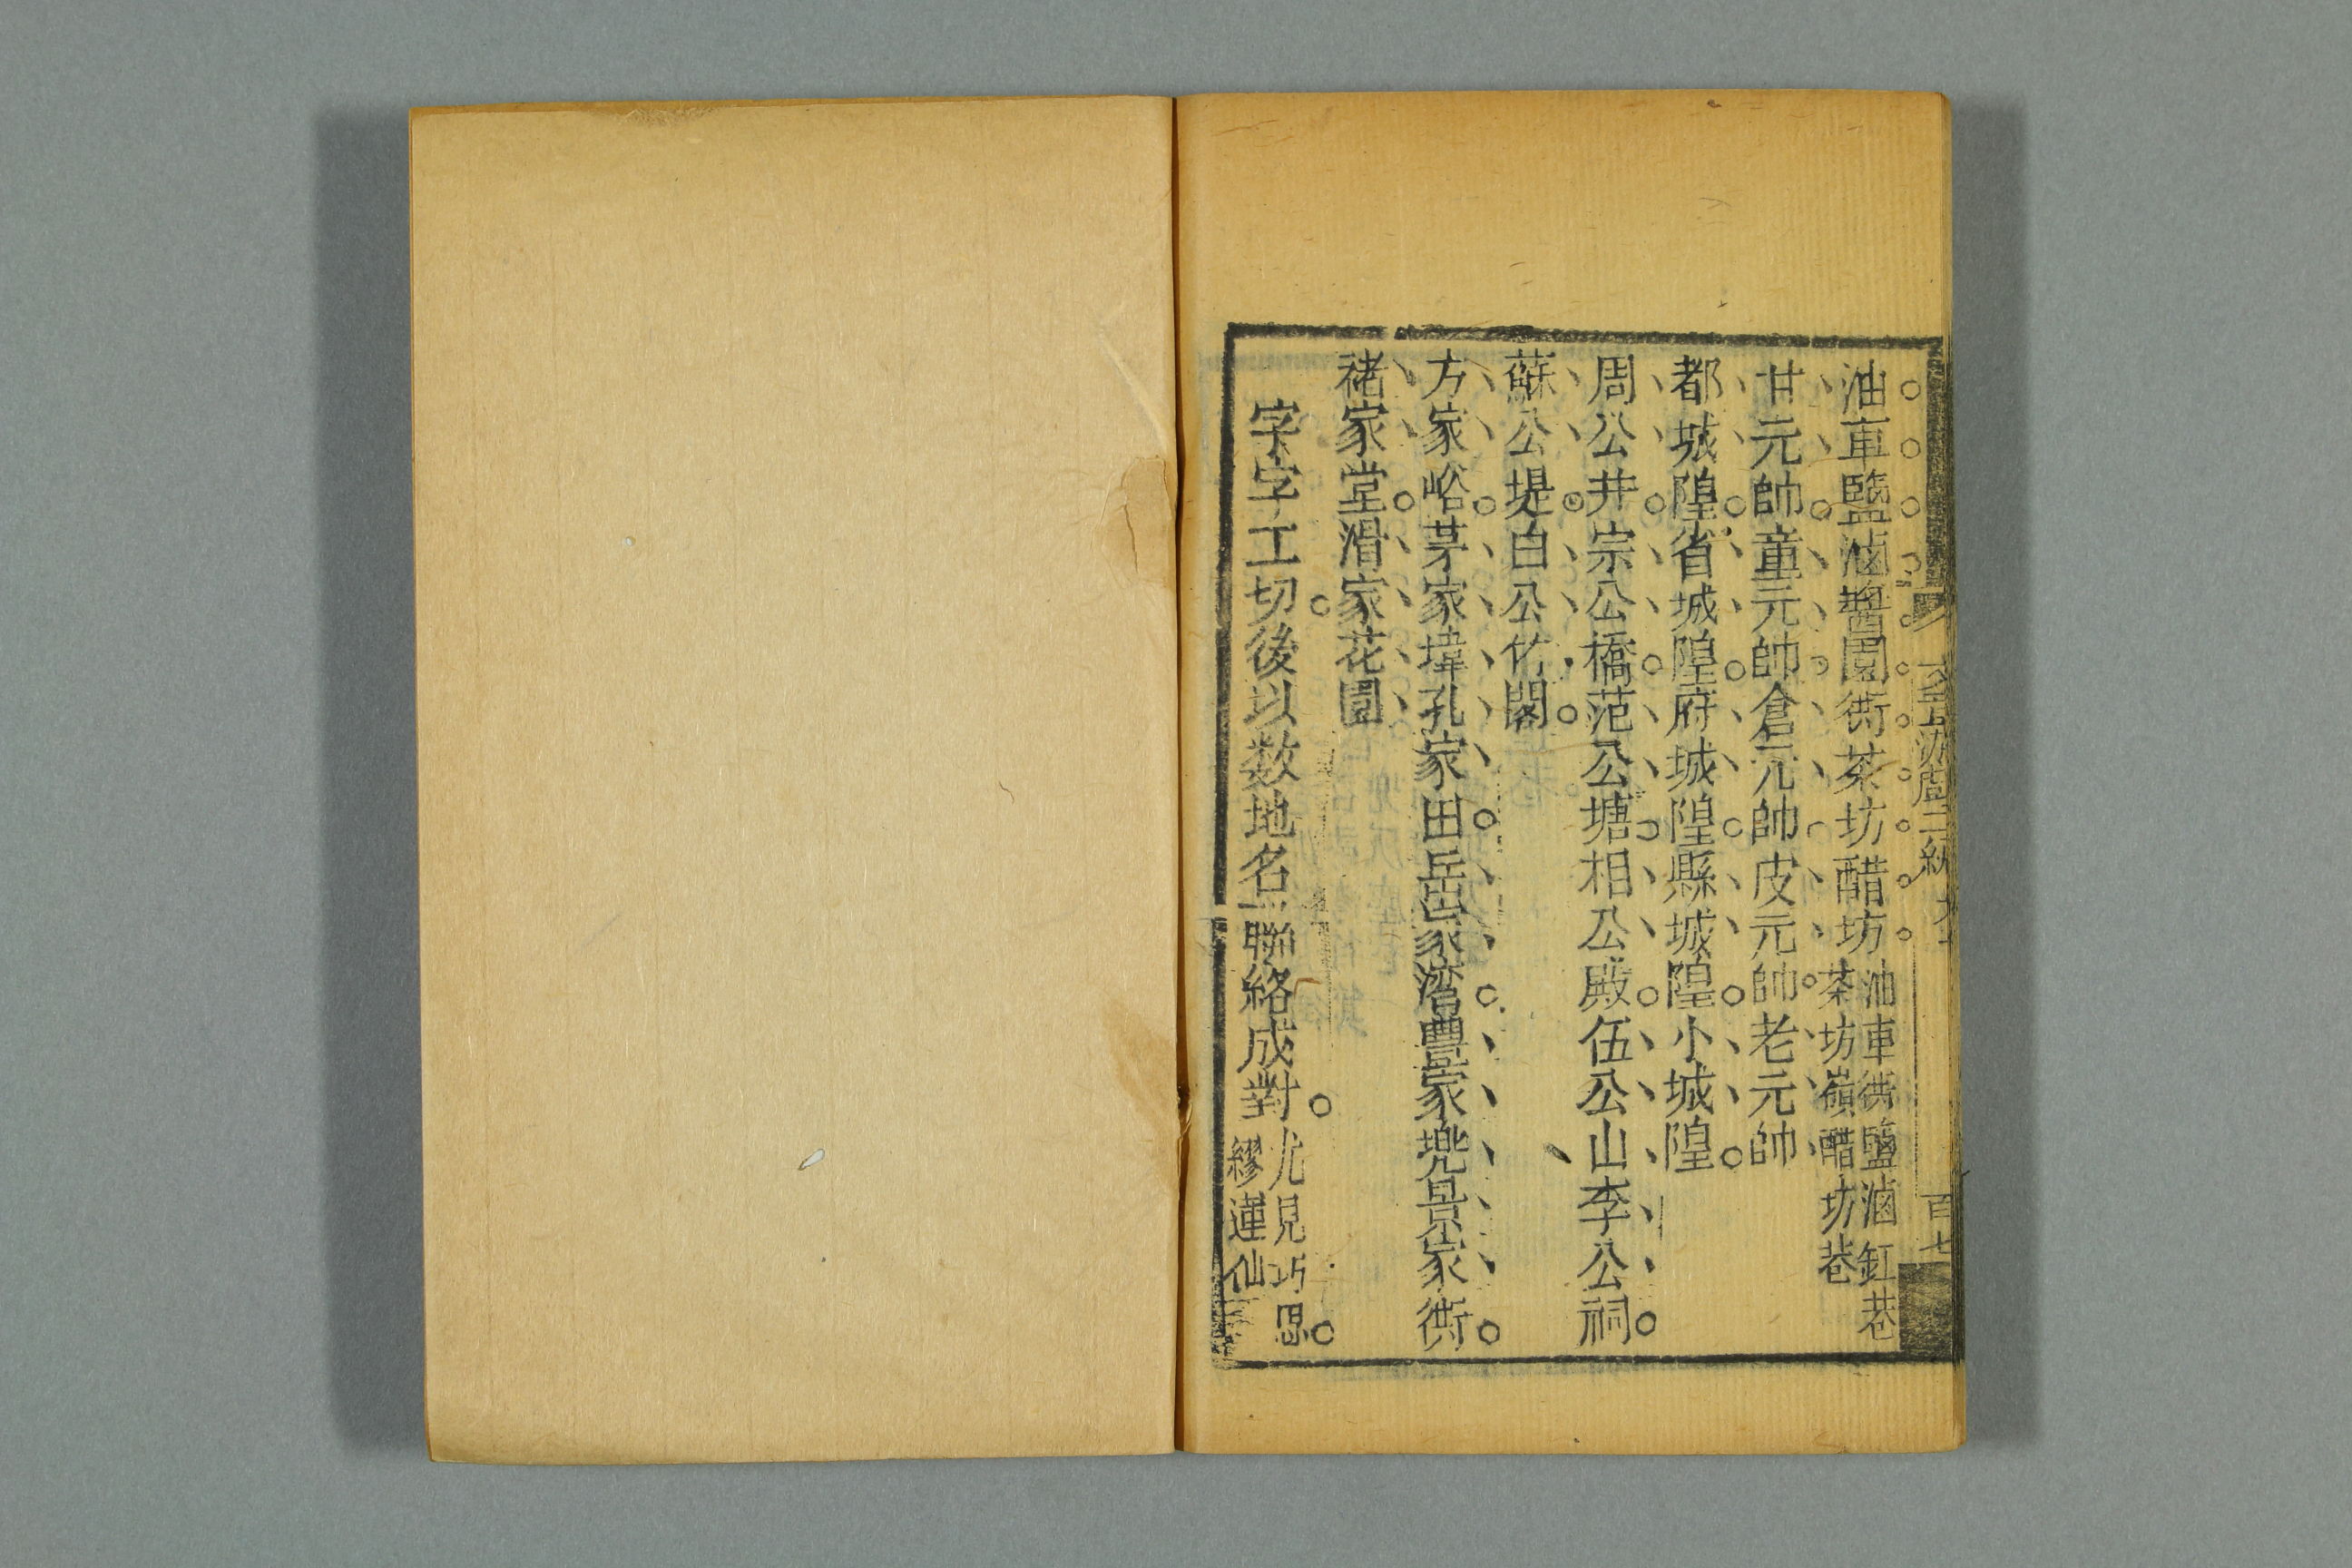 油車鹽滷醬園衖茶坊醋坊油車衖鹽滷缸巷
茶坊嶺醋坊巷
甘元帥童元帥倉元帥皮元帥老元帥
都城隍省城隍府城隍縣城隍小城隍
周公井宗公橋范公塘相公殿伍公山李公祠
蘇公堤白公竹閣
方家峪茅家埠孔家田岳家湾豊家兠景家衖
褚家堂滑家花園
字字工切後以数地名聯絡成對尤見巧思
繆蓮仙
百七